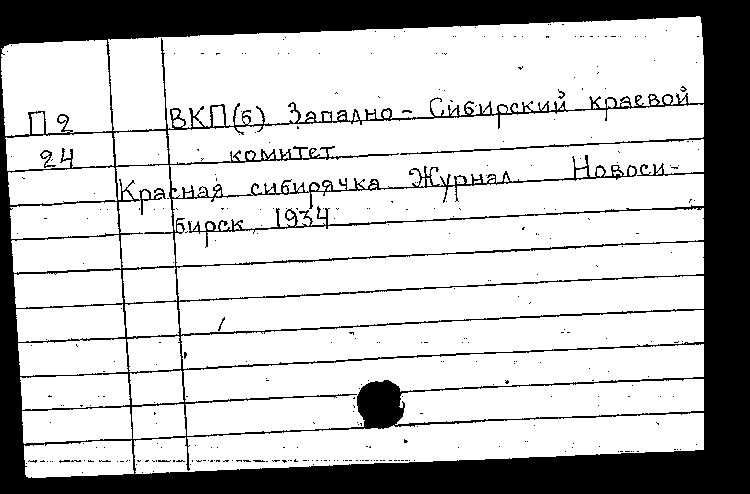 П2 ВКП(б) Западно-Сибирский краевой
24 комитет.
Красная сибирячка Журнал. Новоси-
бирск, 1934